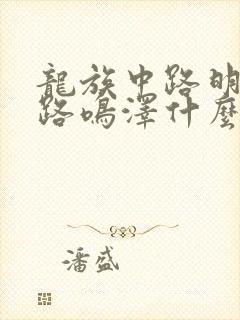 龍族中路明
路鳴澤什麼
潘盛